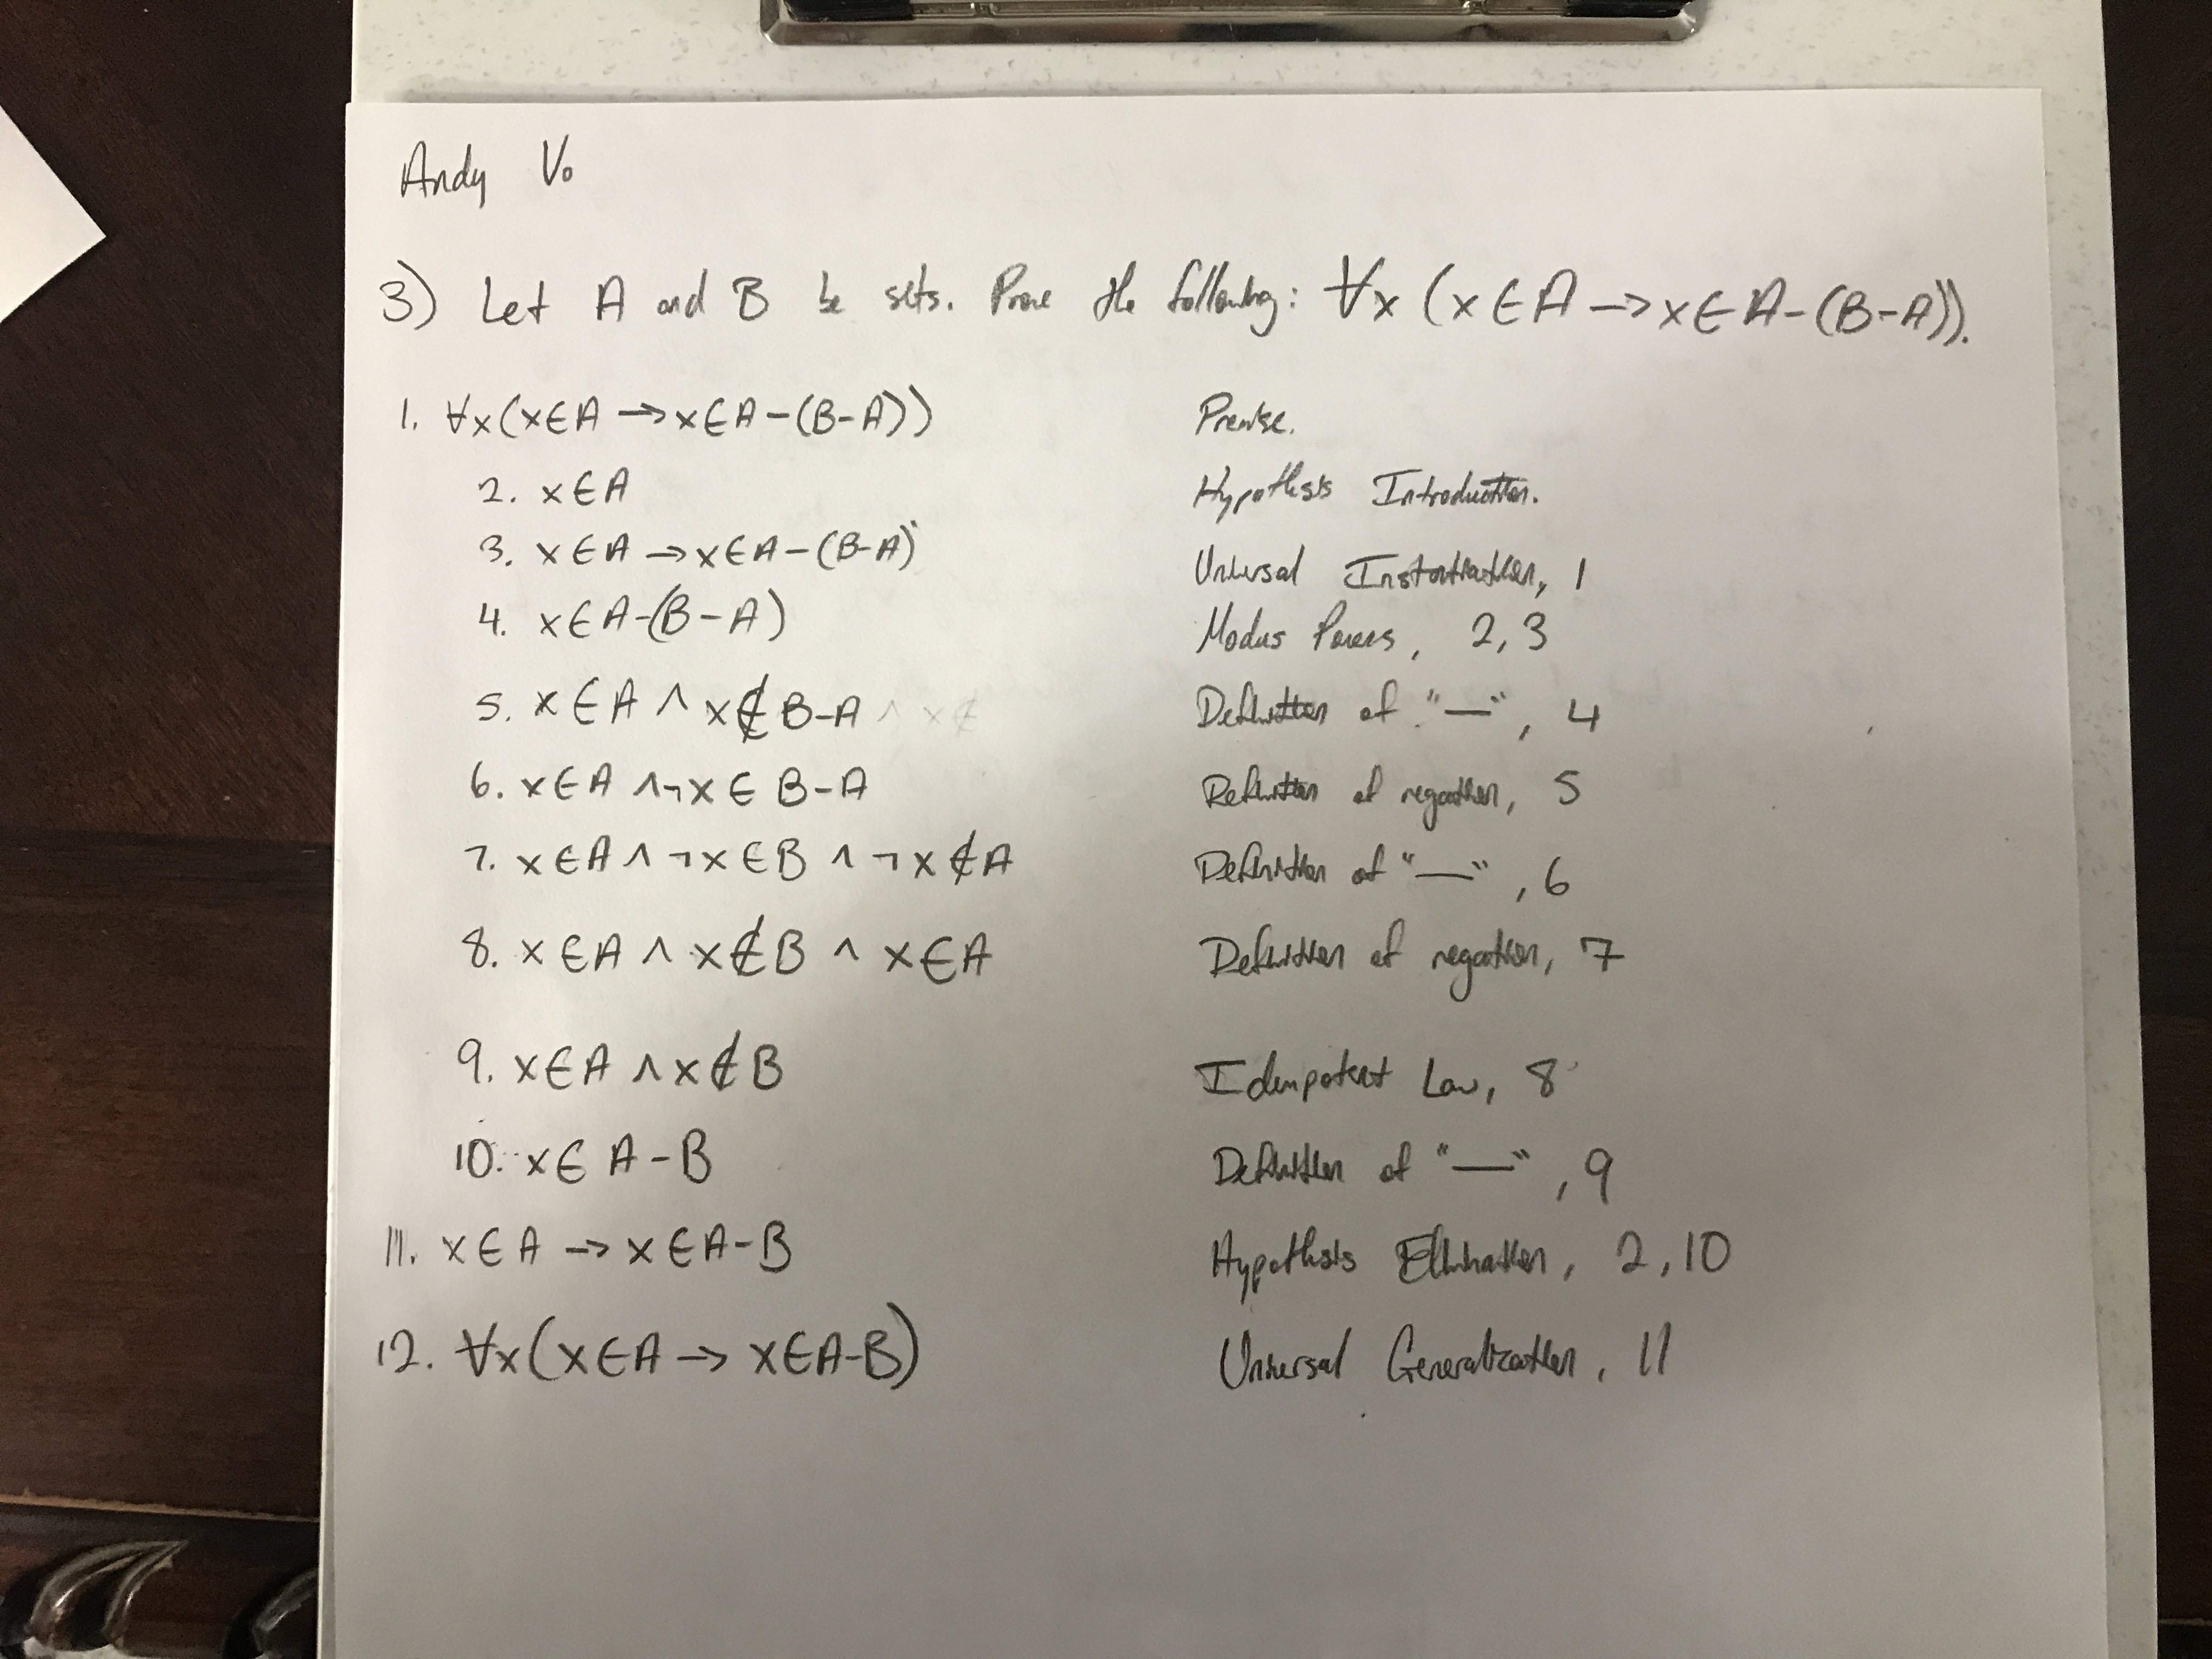 Andy Vo
3) Let A and B be sets. Prove the following: ∀x(x∈A→x∈A-(B-A)).
1. ∀x(x∈A→x∈A-(B-A)) Premise.
2. x∈A Hypothesis Introduction.
3. x∈A→x∈A-(B-A) Universal Instantiation, 1
4. x∈A-(B-A) Modus Ponens, 2,3
5. x∈A ∧ x∉B-A Definition of "—", 4
6. x∈A ∧¬x∈B-A Definition of negation, 5
7. x∈A ∧ ¬x∈B ∧ ¬x∉A Definition of "—", 6
8. x∈A ∧ x∉B ∧ x∈A Definition of negation, 7
9. x∈A ∧ x∉B Idempotent Law, 8
10. x∈A-B Definition of "—", 9
11. x∈A→x∈A-B Hypothesis Elimination, 2,10
12. ∀x(x∈A→x∈A-B) Universal Generalization, 11